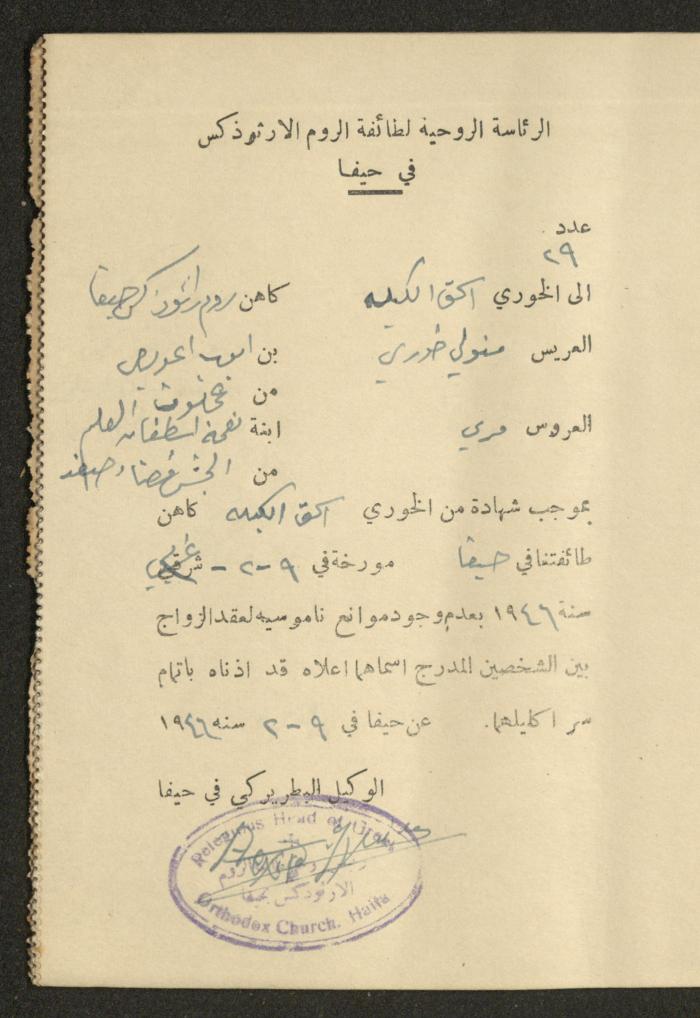 الرئاسة الروحية لطائفة الروم الارثوذكس
في حيفا
عدد
٢٩
الى الخوري اسحق الكيله كاهن روم ارثوذكس حيفا
العريس منولي خوري بن ايوب
من
العروس مري ابنة نعمة اسطفان العلم
من الجش قضاء صفد
بموجب شهادة من الخوري اسحق الكيله كاهن
طائفتنا في حيفا مورخة في ٩-٢- شرقي غربي
سنة ١٩٤٦ بعدم وجود موانع ناموسيه لعقد الزواج
بين الشخصين المدرج اسماهما اعلاه قد اذناه باتمام
سر اكليلهما. عن حيفا في ٩-٢ سنه ١٩٤٦
الوكيل البطريركي في حيفا
Releguous Head of Greek
الروم
الارثوذكس بحيفا
Orthodox Church. Haifa